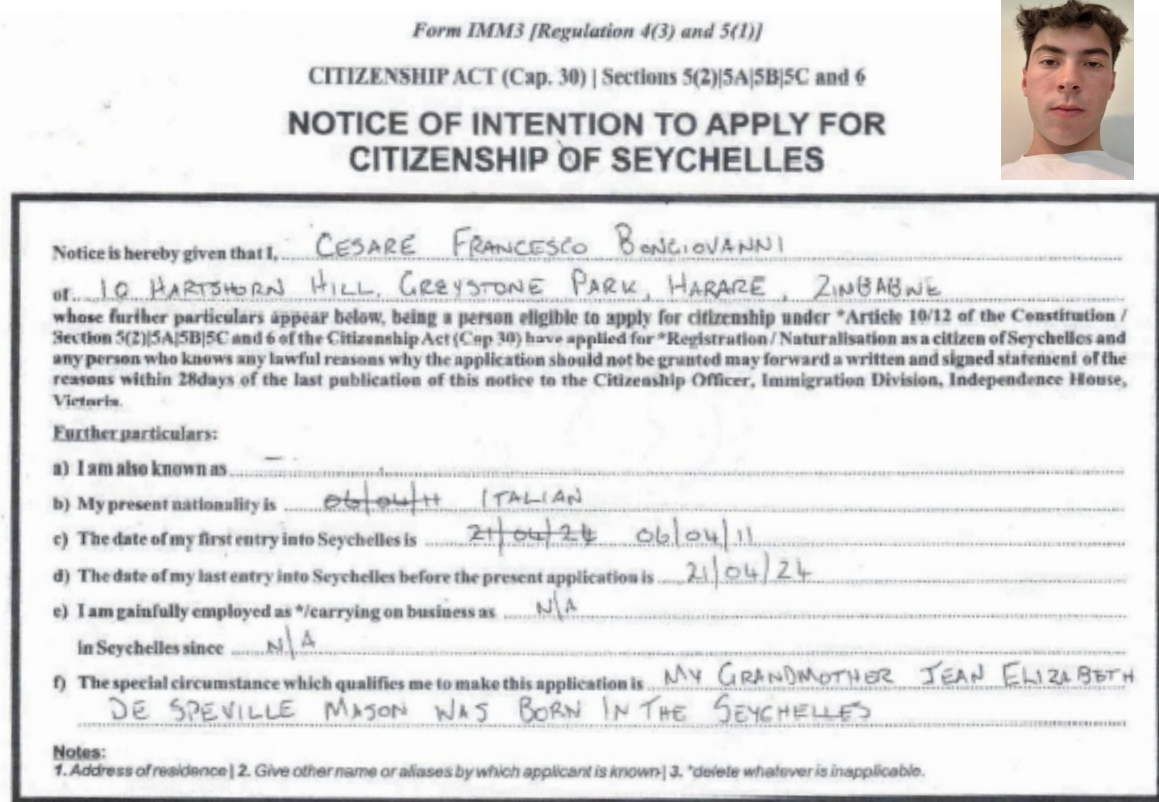 Form IMM3 [Regulation 4(3) and 5(1)]
CITIZENSHIP ACT (Cap. 30) | Sections 5(2)|5A|5B|5C and 6
NOTICE OF INTENTION TO APPLY FOR
CITIZENSHIP OF SEYCHELLES
Notice is hereby given that I, CESARE FRANCESCO BONGIOVANNI
of 10 HARTSHORN HILL, GREYSTONE PARK, HARARE, ZIMBABWE
whose further particulars appear below, being a person eligible to apply for citizenship under *Article 10/12 of the Constitution /
Section 5(2)|5A|5B|5C and 6 of the Citizenship Act (Cap 30) have applied for *Registration / Naturalisation as a citizen of Seychelles and
any person who knows any lawful reasons why the application should not be granted may forward a written and signed statement of the
reasons within 28days of the last publication of this notice to the Citizenship Officer, Immigration Division, Independence House,
Victoria.
Further particulars:
a) I am also known as –
b) My present nationality is 06/04/11 ITALIAN
c) The date of my first entry into Seychelles is 21/04/24 06/04/11
d) The date of my last entry into Seychelles before the present application is 21/04/24
e) I am gainfully employed as */carrying on business as N/A
in Seychelles since N/A
f) The special circumstance which qualifies me to make this application is MY GRANDMOTHER JEAN ELIZABETH
DE SPEVILLE MASON WAS BORN IN THE SEYCHELLES
Notes:
1. Address of residence | 2. Give other name or aliases by which applicant is known | 3. *delete whatever is inapplicable.